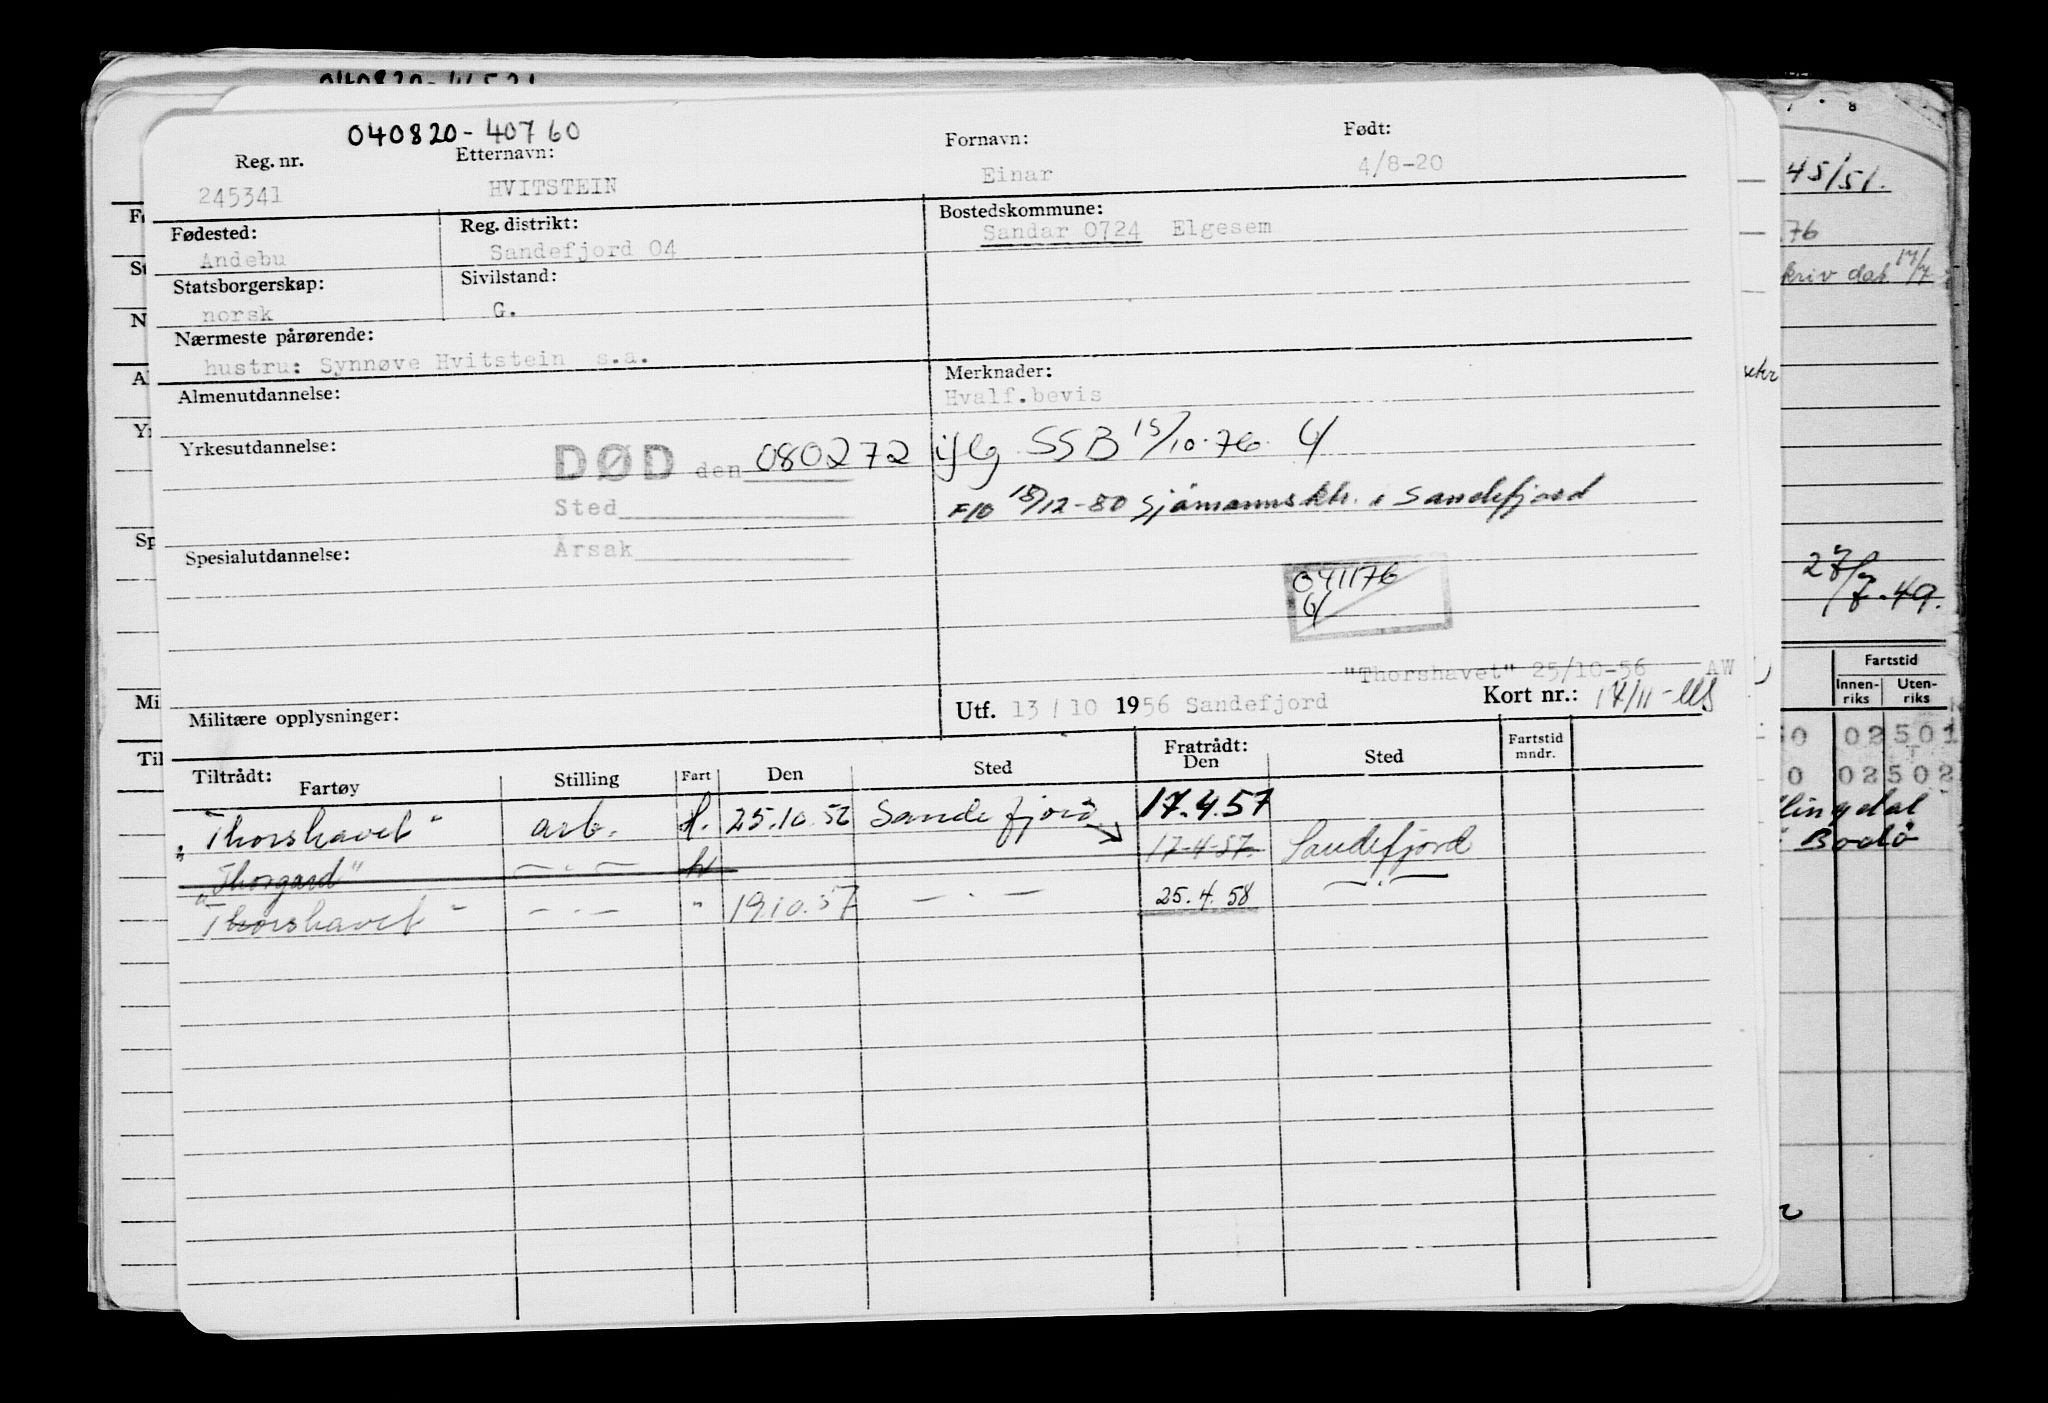 040820-40760
Reg. nr. Etternavn: Fornavn: Født:
245341 HVITSTEIN Einar 4/8-20
Fødested: Reg. distrikt: Bostedskommune:
Andebu Sandefjord 04 Sandar 0724 Elgesem
Statsborgerskap: Sivilstand:
norsk G.
Nærmeste pårørende:
hustru: Synnøve Hvitstein s.a.
Merknader:
Almenutdannelse: Hvalf.bevis
Yrkesutdannelse:
DØD den 080272 iflg SSB 15/10-76
Sted
F10 18/12-80 Sjømannsktr. i Sandefjord
Årsak
Spesialutdannelse:
041176
"Thorshavet" 25/10-56 AW
Militære opplysninger: Utf. 13/10 1956 Sandefjord Kort nr.: 17/11
Tiltrådt: Fratrådt:
Fartøy Stilling Fart Den Sted Den Sted Fartstid mndr.
"Thorshavet" arb. H. 25.10.56 Sandefjord 17.4.57
"Thorgard" — . — H 17-4-57. Sandefjord
"Thorshavet" — . — " 19.10.57 — . — 25.4.58 — . —
45/51.
76
kriv dat 17/7
27/7-49.
Fartstid
Innen-riks Uten-riks
0 02501
0 02502
Bodö